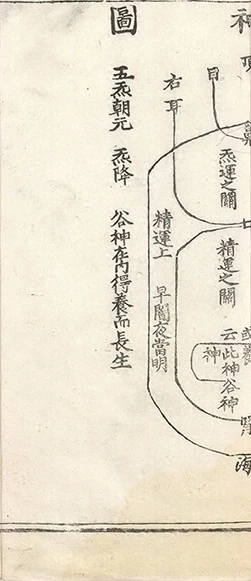 神
頂
目
鼻
右耳
炁運之關
七
精運之關
或
云此神谷神
神
腎
海
精運上　早闇夜當明
圖　五炁朝元　炁降　谷神在內得養而長生